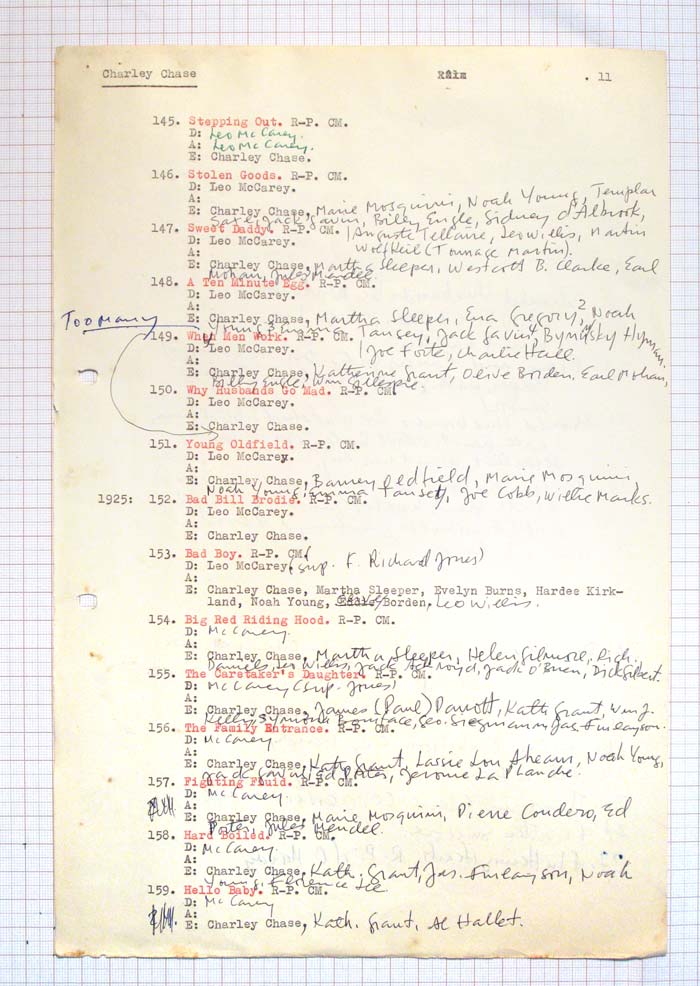 Charley Chase . 11
145. Stepping Out. R-P. CM.
D: Leo McCarey.
A: Leo McCarey.
E: Charley Chase.
146. Stolen Goods. R-P. CM.
D: Leo McCarey.
A:
E: Charley Chase, Marie Mosquini, Noah Young, Templar
Saxe, Jack Gavin, Billy Engle, Sidney d'Albrook,
147. Sweet Daddy. R-P. CM. / Auguste Tollaire, Leo Willis, Martin
D: Leo McCarey. Wolfkeil (Tonnage Martin).
A:
E: Charley Chase, Martha Sleeper, Westcott B. Clarke, Earl
Mohan, Jules Mendel.
148. A Ten Minute Egg. R-P. CM.
D: Leo McCarey.
A:
Too Many
E: Charley Chase, Martha Sleeper, Ena Gregory, Noah
Young, Emma Tansey, Jack Gavin, Bynunsky Hyman.
149. When Men Work. R-P. CM.
D: Leo McCarey. / Joe Forte, Charlie Hall.
A:
E: Charley Chase, Katherine Grant, Olive Borden, Earl Mohan,
Billy Engle, Wm Gillespie.
150. Why Husbands Go Mad. R-P. CM.
D: Leo McCarey.
A:
E: Charley Chase.
151. Young Oldfield. R-P. CM.
D: Leo McCarey.
A:
E: Charley Chase, Barney Oldfield, Marie Mosquini,
Noah Young, Emma Tansey, Joe Cobb, Willie Marks.
1925: 152. Bad Bill Brodie. R-P. CM.
D: Leo McCarey.
A:
E: Charley Chase.
153. Bad Boy. R-P. CM.
D: Leo McCarey (sup. F. Richard Jones)
A:
E: Charley Chase, Martha Sleeper, Evelyn Burns, Hardee Kirk-
land, Noah Young, Borden, Leo Willis.
154. Big Red Riding Hood. R-P. CM.
D: McCarey.
A:
E: Charley Chase, Martha Sleeper, Helen Gilmore, Rich.
Daniels, Leo Willis, Jack Ackroyd, Jack O'Brien, Dick Gilbert.
155. The Caretaker's Daughter. R-P. CM.
D: McCarey (sup. Jones)
A:
E: Charley Chase, James (Paul) Parrott, Kath Grant, Wm J.
Kelly, Symona Boniface, Geo. Siegmann, Jas. Finlayson.
156. The Family Entrance. R-P. CM.
D: McCarey
A:
E: Charley Chase, Kath Grant, Lassie Lou Ahearn, Noah Young,
Jack Gavin, Ed Porter, Jerome La Planche.
157. Fighting Fluid. R-P. CM.
D: McCarey.
A:
E: Charley Chase, Marie Mosquini, Pierre Coudero, Ed
Porter, Jules Mendel.
158. Hard Boiled. R-P. CM.
D: McCarey.
A:
E: Charley Chase, Kath. Grant, Jas. Finlayson, Noah
Young, Florence Lee.
159. Hello Baby. R-P. CM.
D: McCarey
A:
E: Charley Chase, Kath. Grant, Al Hallet.